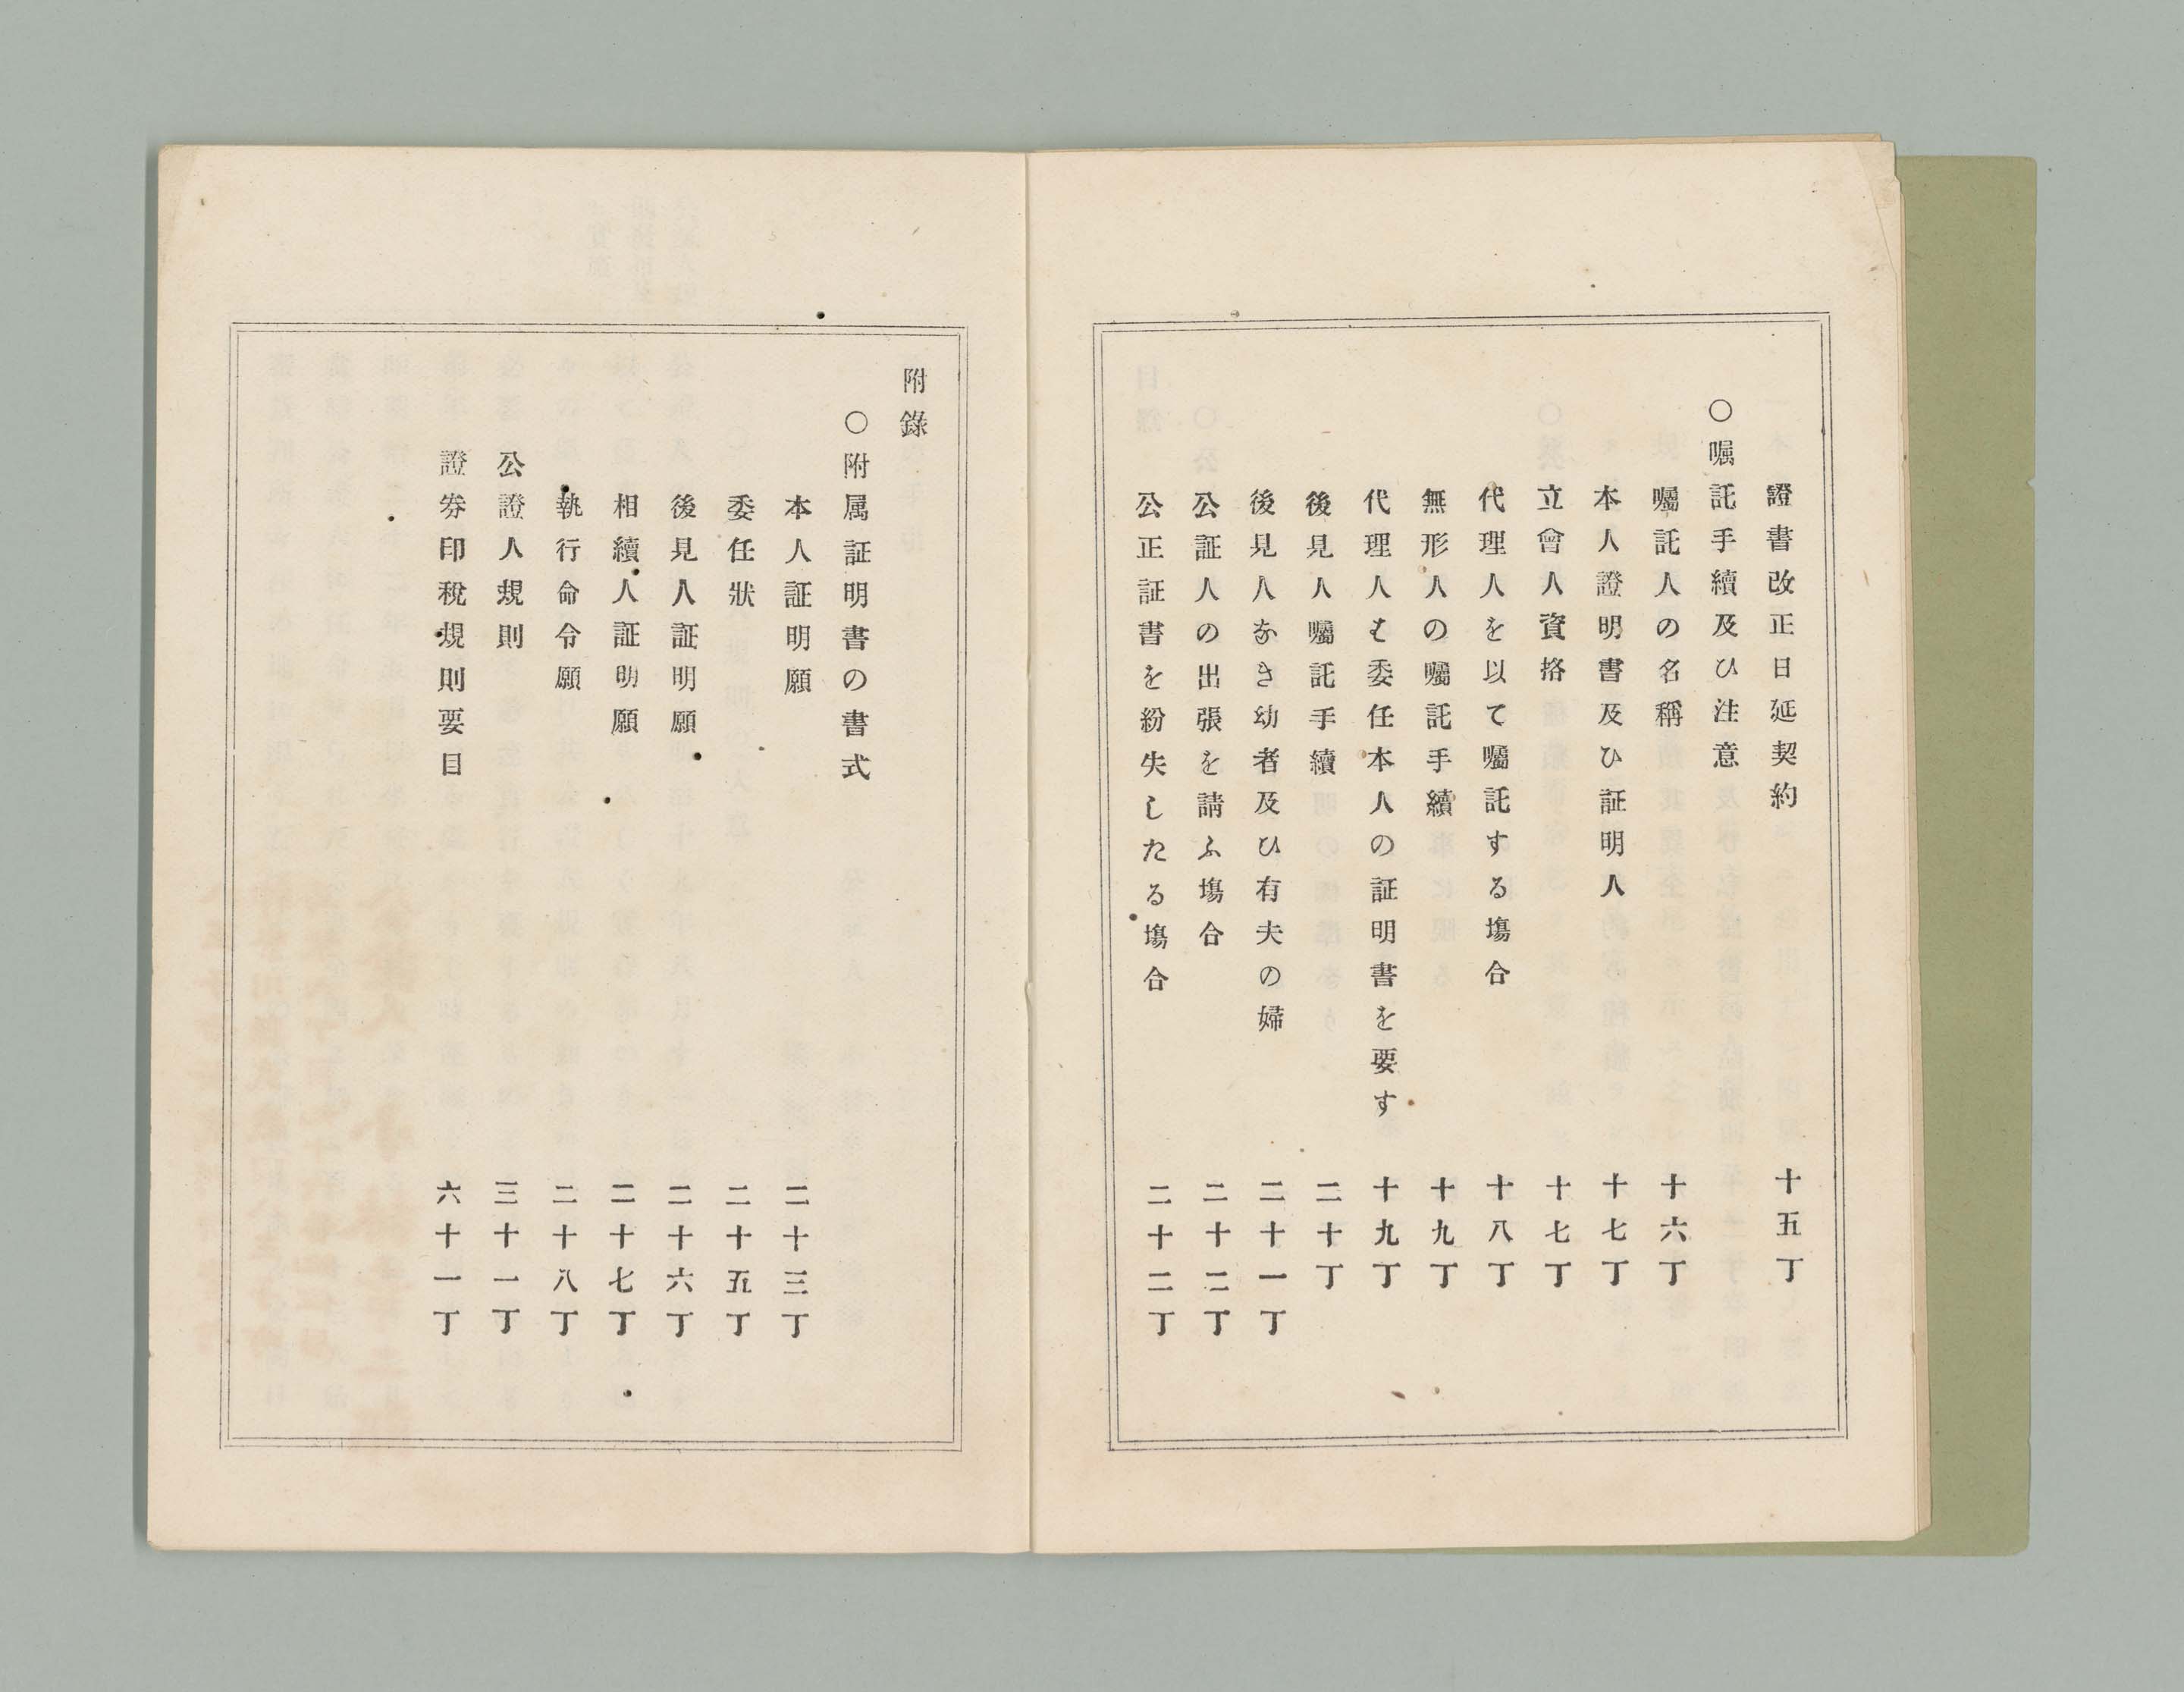 證書改正日延契約　十五丁
○嘱託手續及ひ注意
囑託人の名稱　十六丁
本人證明書及ひ証明人　十七丁
立會人資挌　十七丁
代理人を以て囑託する塲合　十八丁
無形人の囑託手續　十九丁
代理人も委任本人の証明書を要す　十九丁
後見人囑託手續　二十丁
後見人なき幼者及ひ有夫の婦　二十一丁
公証人の出張を請ふ塲合　二十二丁
公正証書を紛失したる塲合　二十二丁
附錄
○附属証明書の書式
本人証明願　二十三丁
委任狀　二十五丁
後見人証明願　二十六丁
相續人証明願　二十七丁
執行命令願　二十八丁
公證人規則　三十一丁
證券印稅規則要目　六十一丁